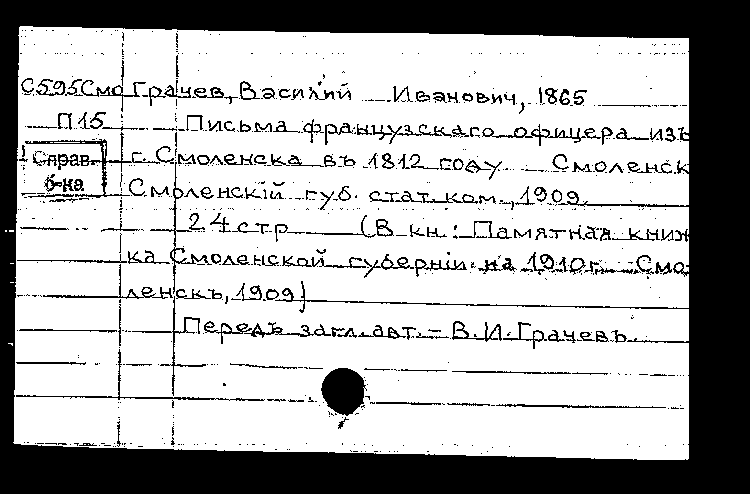 С595Смо Грачев, Василий Иванович, 1865
П15 Письма французскаго офицера изъ
Справ. г. Смоленска въ 1812 году Смоленск
б-ка Смоленскій губ. стат. ком., 1909.
24 стр (В кн.: Памятная книж
ка Смоленской губерніи на 1910 г. Смо
ленскъ, 1909)
Передъ загл. авт. – В.И.Грачевъ.